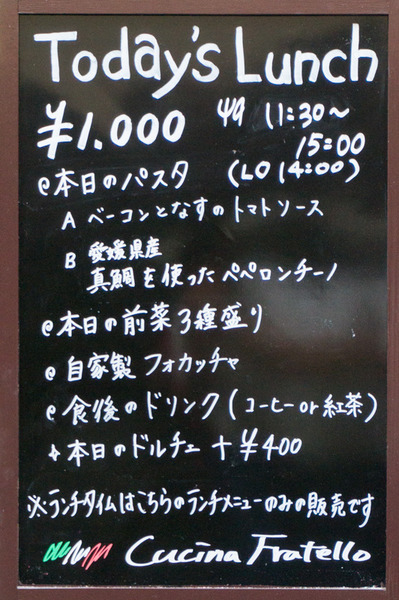 Today's Lunch
¥1.000 11:30~
15:00
(LO 14:00)
本日のパスタ
A ベーコンとなすのトマトソース
B 愛媛県産
真鯛を使ったペペロンチーノ
本日の前菜3種盛り
自家製フォカッチャ
食後のドリンク(コーヒーor紅茶)
本日のドルチェ+¥400
※ランチタイムはこちらのランチメニューのみの販売です
Cucina Fratello